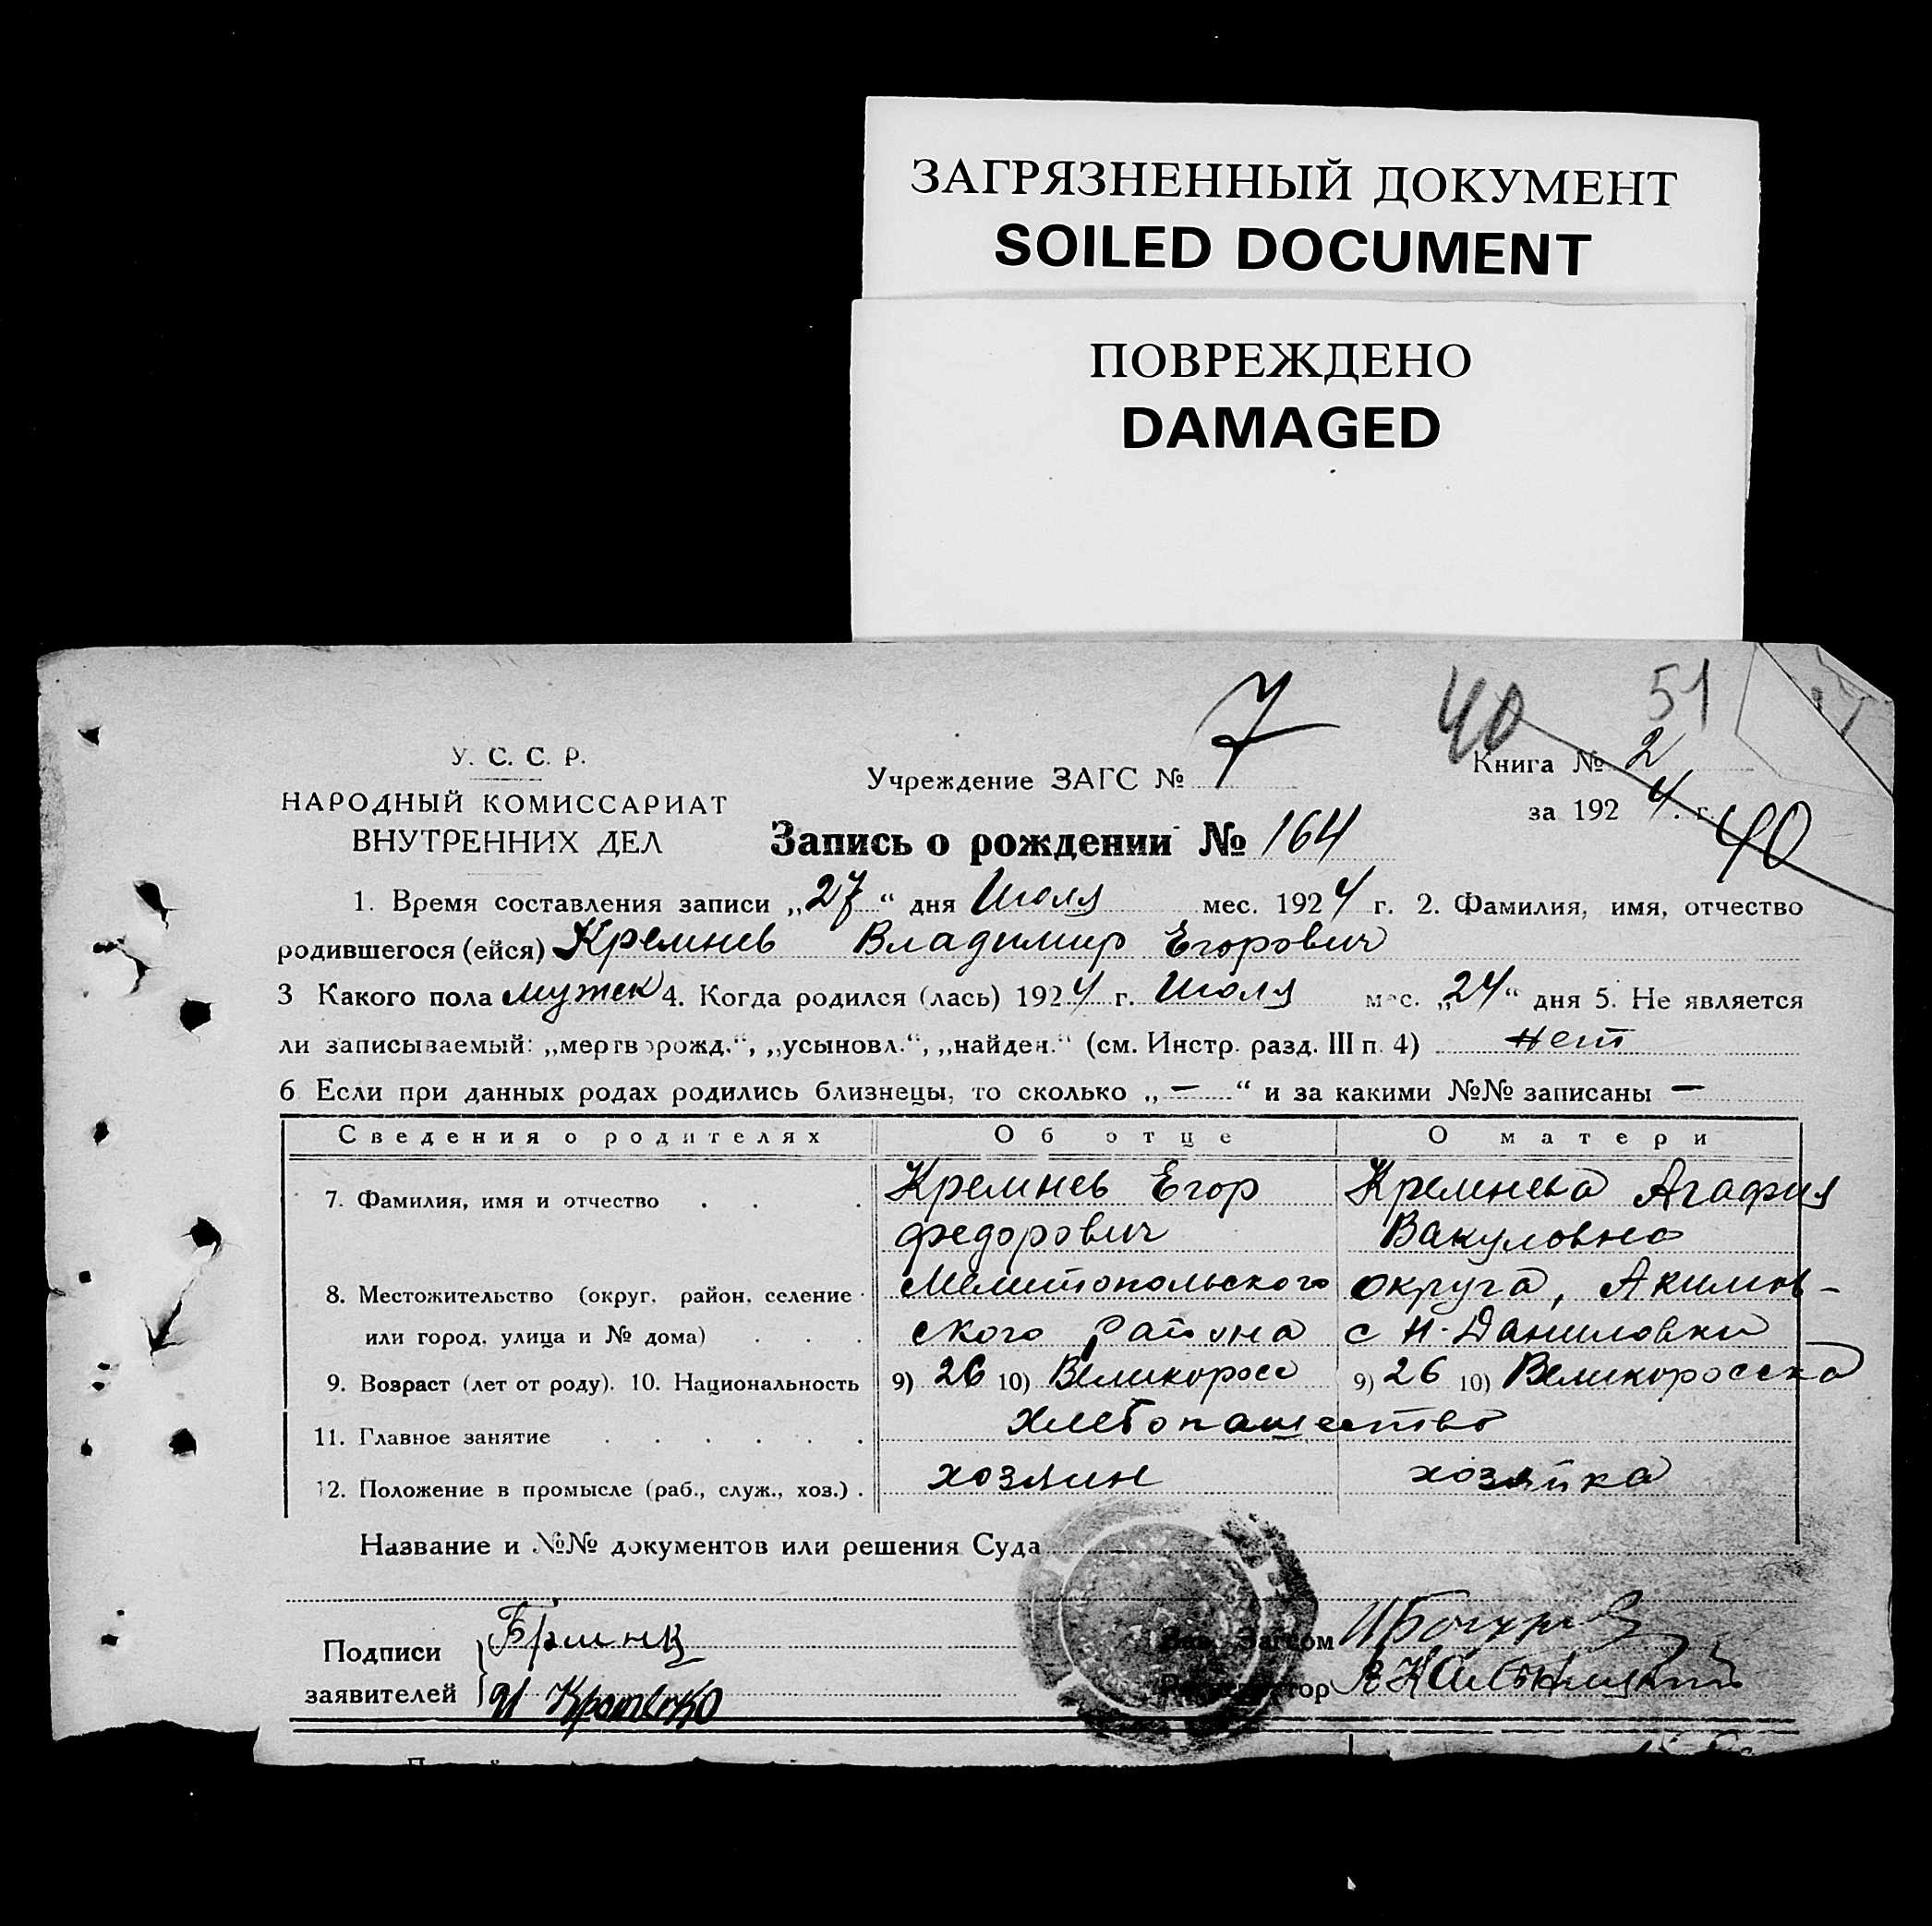 ЗАГРЯЗНЕННЫЙ ДОКУМЕНТ
SOILED DOCUMENT
ПОВРЕЖДЕНО
DAMAGED
40 51
У. С. С. Р.
НАРОДНЫЙ КОМИССАРИАТ
ВНУТРЕННИХ ДЕЛ
Учреждение ЗАГС № 7
Книга № 2
за 1924 г.
40
Запись о рождении № 164
1. Время составления записи „27“ дня Июля мес. 1924 г. 2. Фамилия, имя, отчество
родившегося (ейся) Кремнев Владимир Егорович
3 Какого пола мужск 4. Когда родился (лась) 1924 г. Июля мес. „24“ дня 5. Не является
ли записываемый: „мертворожд.“, „усыновл.“, „найден.“ (см. Инстр. разд. III п. 4) нет
6 Если при данных родах родились близнецы, то сколько „—“ и за какими №№ записаны —
Сведения о родителях Об отце О матери
7. Фамилия, имя и отчество . . . Кремнев Егор Кремнева Агафия
федорович Вакуловна
8. Местожительство (округ, район, селение Мелитопольского округа, Акимов-
или город, улица и № дома) . . . ского района с Н-Даниловки
9. Возраст (лет от роду). 10. Национальность 9) 26 10) Великоросс 9) 26 10) Великоросска
11. Главное занятие . . . . . . Хлебопашество
12. Положение в промысле (раб., служ., хоз.) . хозяин хозяйка
Название и №№ документов или решения Суда
Подписи
заявителей
Зав. Загсом
Регистратор